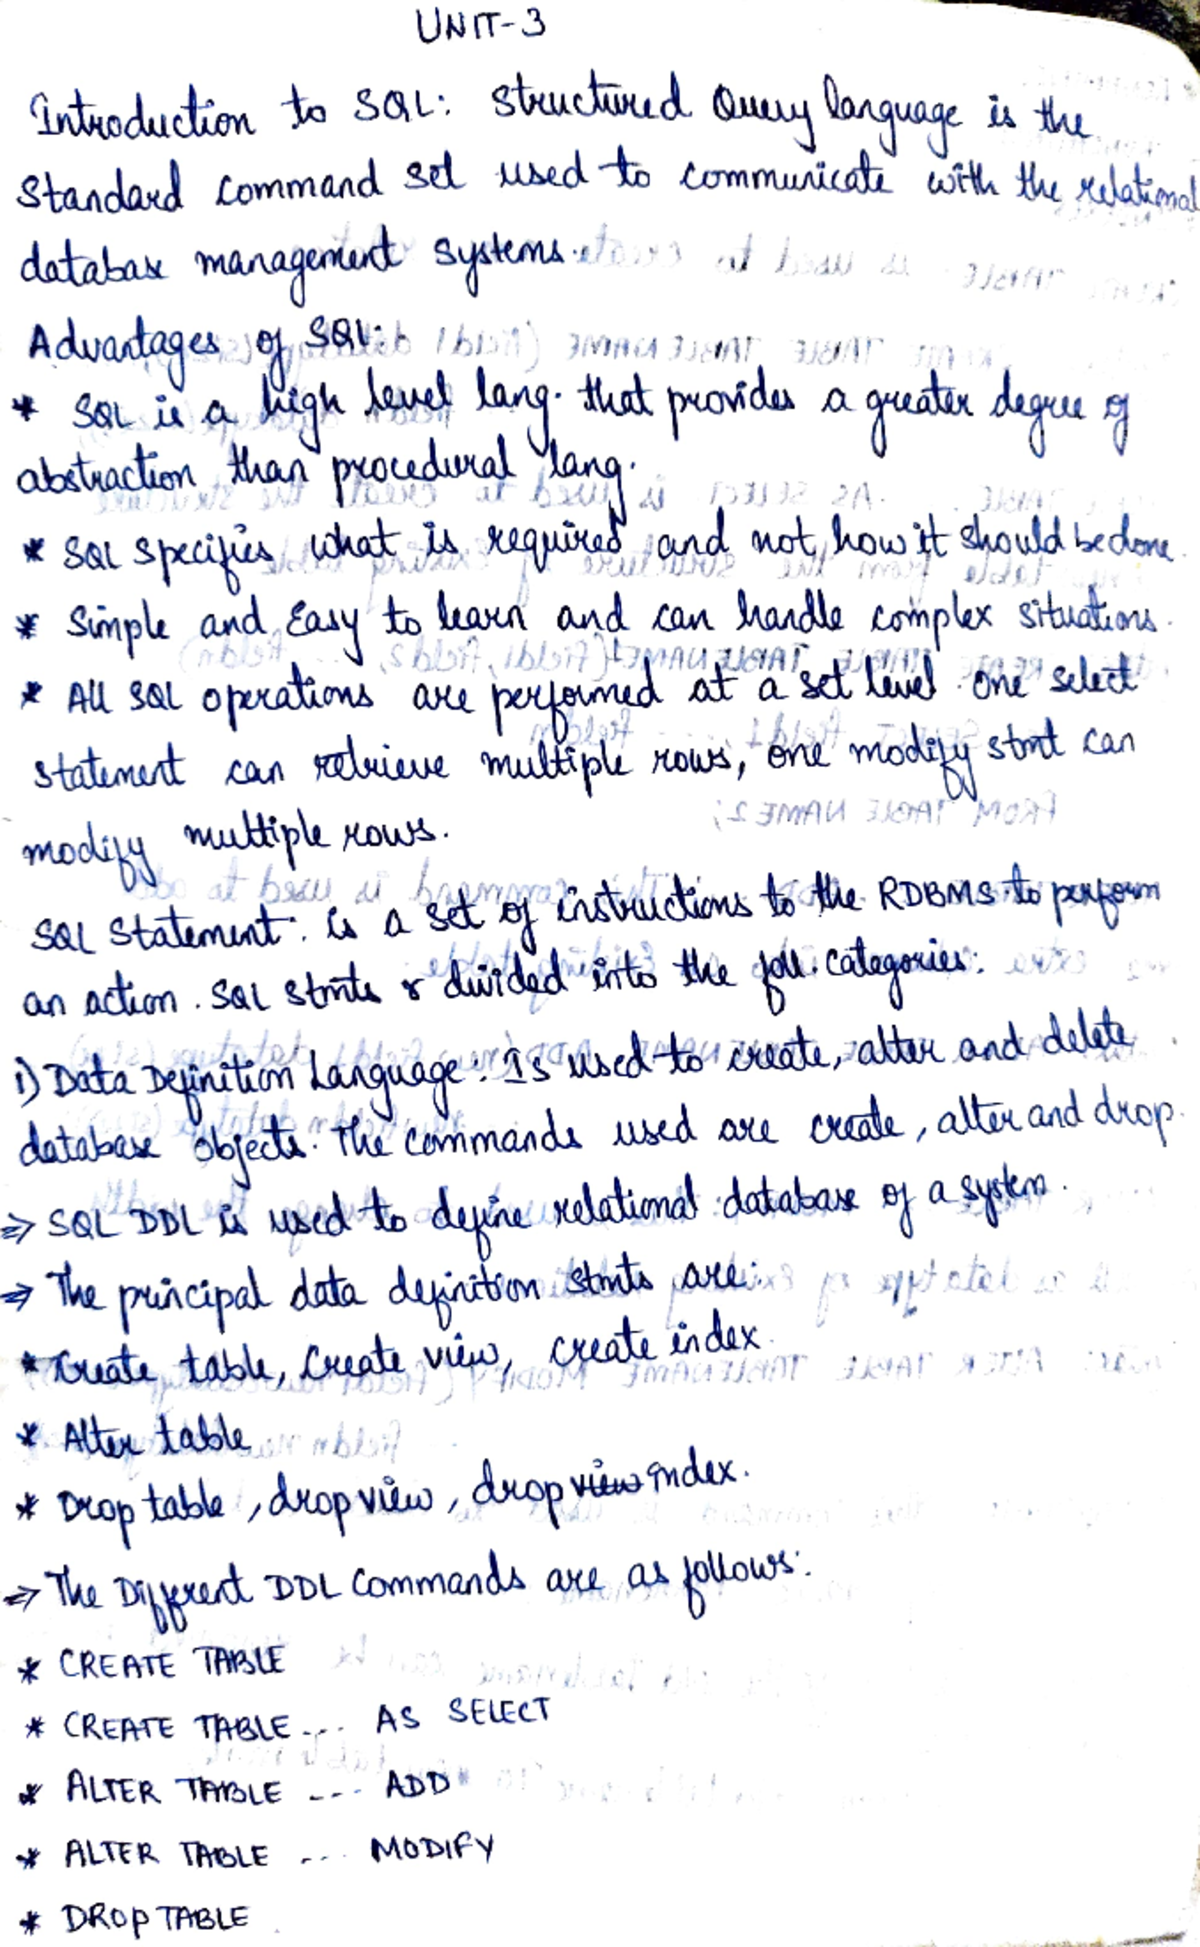 UNIT-3
Introduction to SQL: Structured Query language is the
Standard command set used to communicate with the relational
database management systems.
Advantages of SQL:
* SQL is a high level lang. that provides a greater degree of
abstraction than procedural lang.
* SQL specifies what is required and not how it should be done.
* Simple and Easy to learn and can handle complex situations.
* All SQL operations are performed at a set level. One select
statement can retrieve multiple rows, one modify stmt can
modify multiple rows.
SQL Statement: is a set of instructions to the RDBMS to perform
an action. SQL stmts r divided into the foll. categories:
i) Data Definition Language: Is used to create, alter and delete
database objects. The commands used are create, alter and drop.
⇒ SQL DDL is used to define relational database of a system.
⇒ The principal data definition stmts are:
* Create table, Create view, create index
* Alter table
* Drop table, drop view, drop view index.
⇒ The Different DDL Commands are as follows:
* CREATE TABLE
* CREATE TABLE ... AS SELECT
* ALTER TABLE ... ADD
* ALTER TABLE ... MODIFY
* DROP TABLE